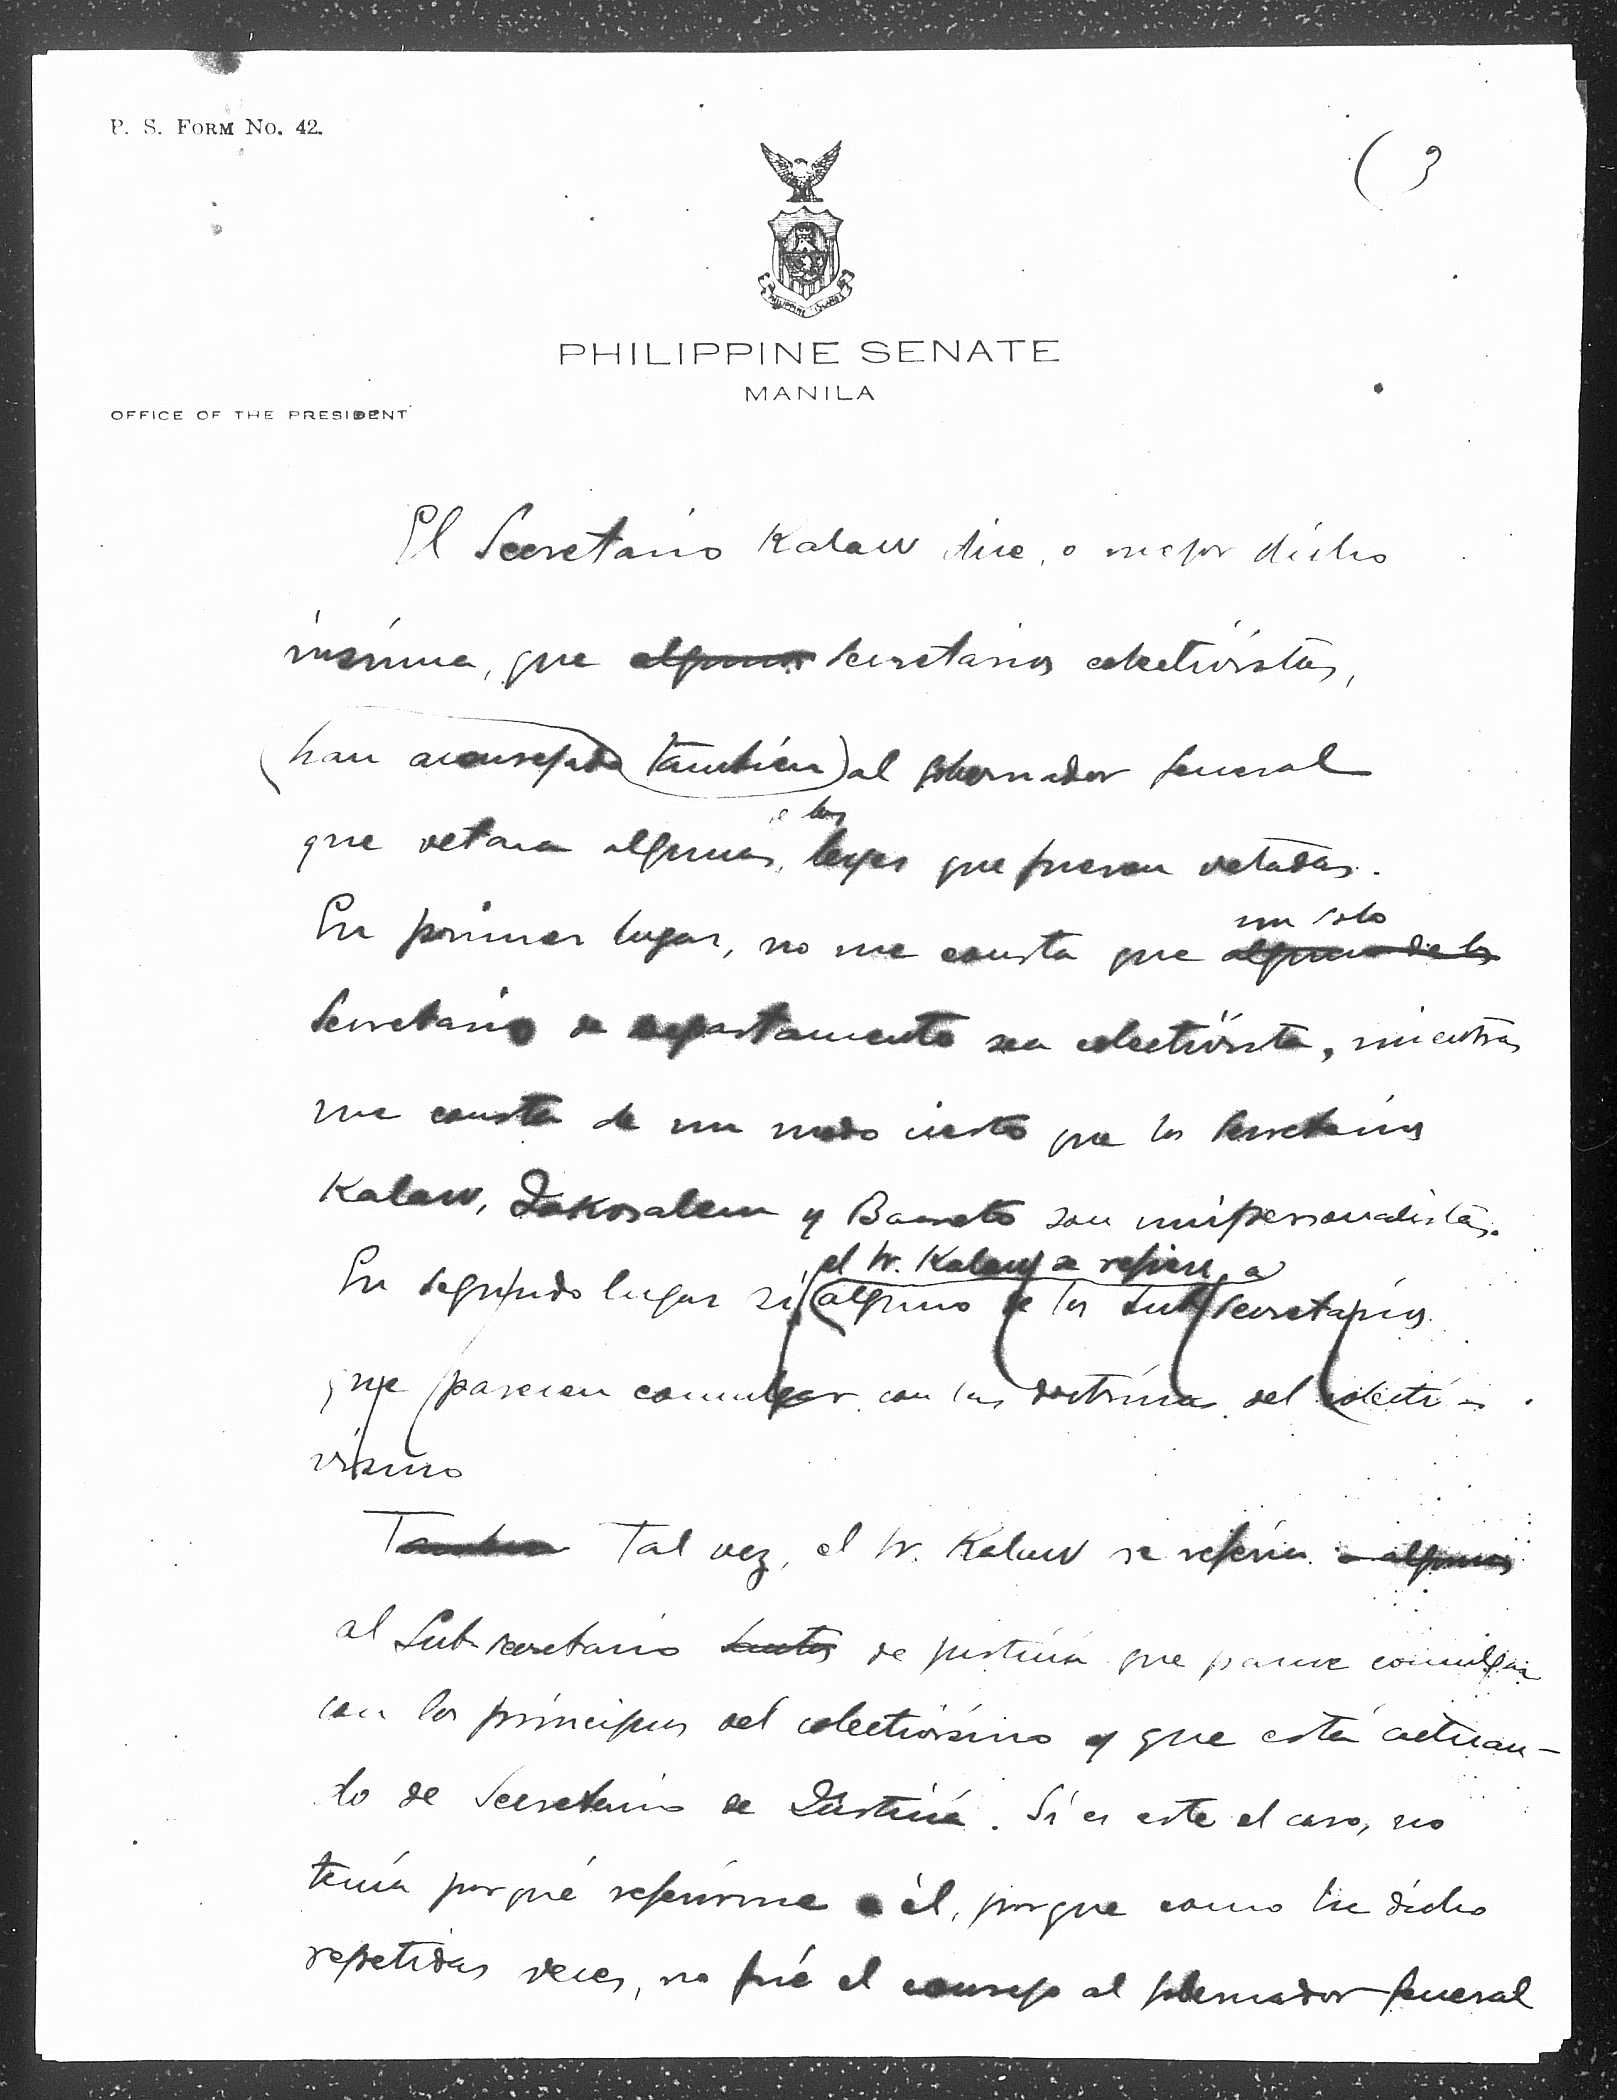 P. S. FORM NO. 42.
( 3
PHILIPPINE SENATE
MANILA
OFFICE OF THE PRESIDENT
El Secretario Kalaw dice, o mejor dicho
insinua, que algunos Secretarios colectivistas,
(han aconsejado (también) al gobernador general
de las
que vetara algunas, leyes que fueron vetadas.
un solo
En primer lugar, no me consta que alguno de los
Secretario de departamento sea colectivista, mientras
me consta de un modo cierto que los Secretarios
Kalaw, Jakosalem y Barreto son unipersonalistas.
el Sr. Kalaw se refiere a
En segundo lugar si (alguno de los Sub Secretarios
que parecen comulgar con las doctrinas del colecti-
vismo
Tambien Tal vez, el Sr. Kalaw se refería a algunos
al Sub-secretario Santos de justicia que parece comulgar
con los principios del colectivismo y que está actuan-
do de Secretario de Justicia. Si es este el caso, no
tenía porqué referirme a él, porque como he dicho
repetidas veces, no fué el consejo al gobernador general